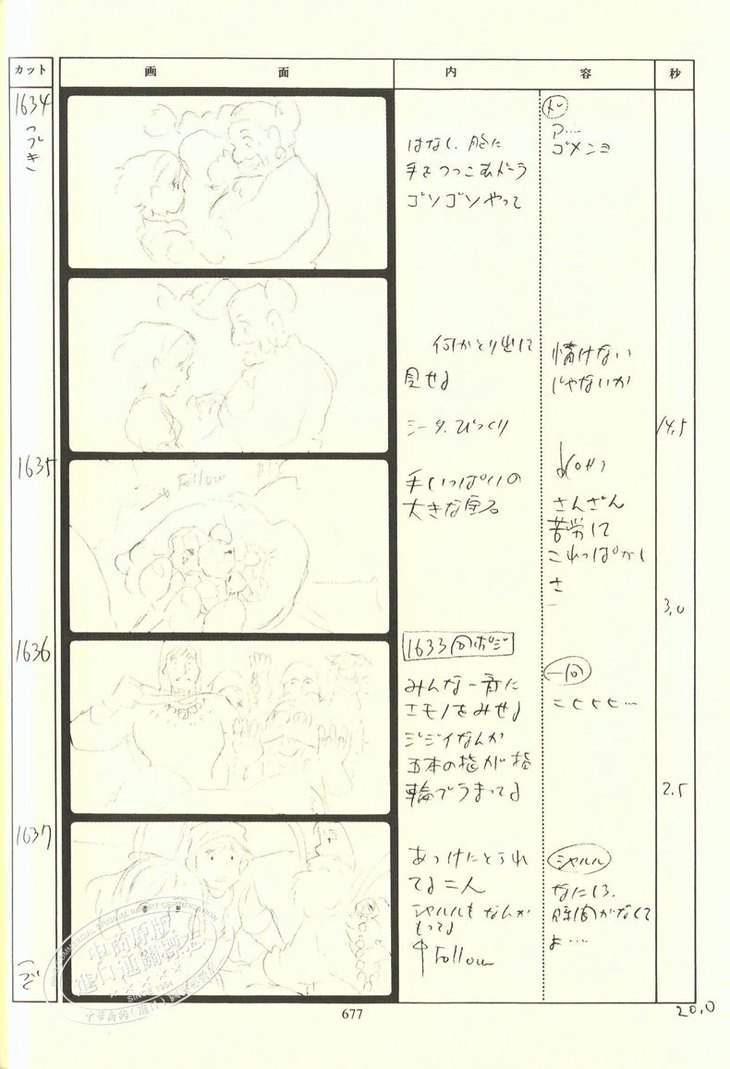 カット
画 面
内 容
秒
1634
つづき
はなし、胸に
手をつっこむドーラ
ゴソゴソやって
ド
ア…
ゴメンヨ
何かとり出して
見せる
シータ、びっくり
情けない
じゃないか
14.5
1635
Follow
手いっぱいの
大きな宝石
さんざん
苦労して
これっぽかし
さ
3.0
1636
1633同ポジ
みんな一斉に
エモノをみせる
ジジイなんか
五本の指が指
輪でうまってる
一同
ヒヒヒ…
2.5
1637
あっけにとられ
てる二人
シャルルもなんか
もってる
Follow
シャルル
なにしろ、
時間がなくて
よ…
つづ
677
20.0